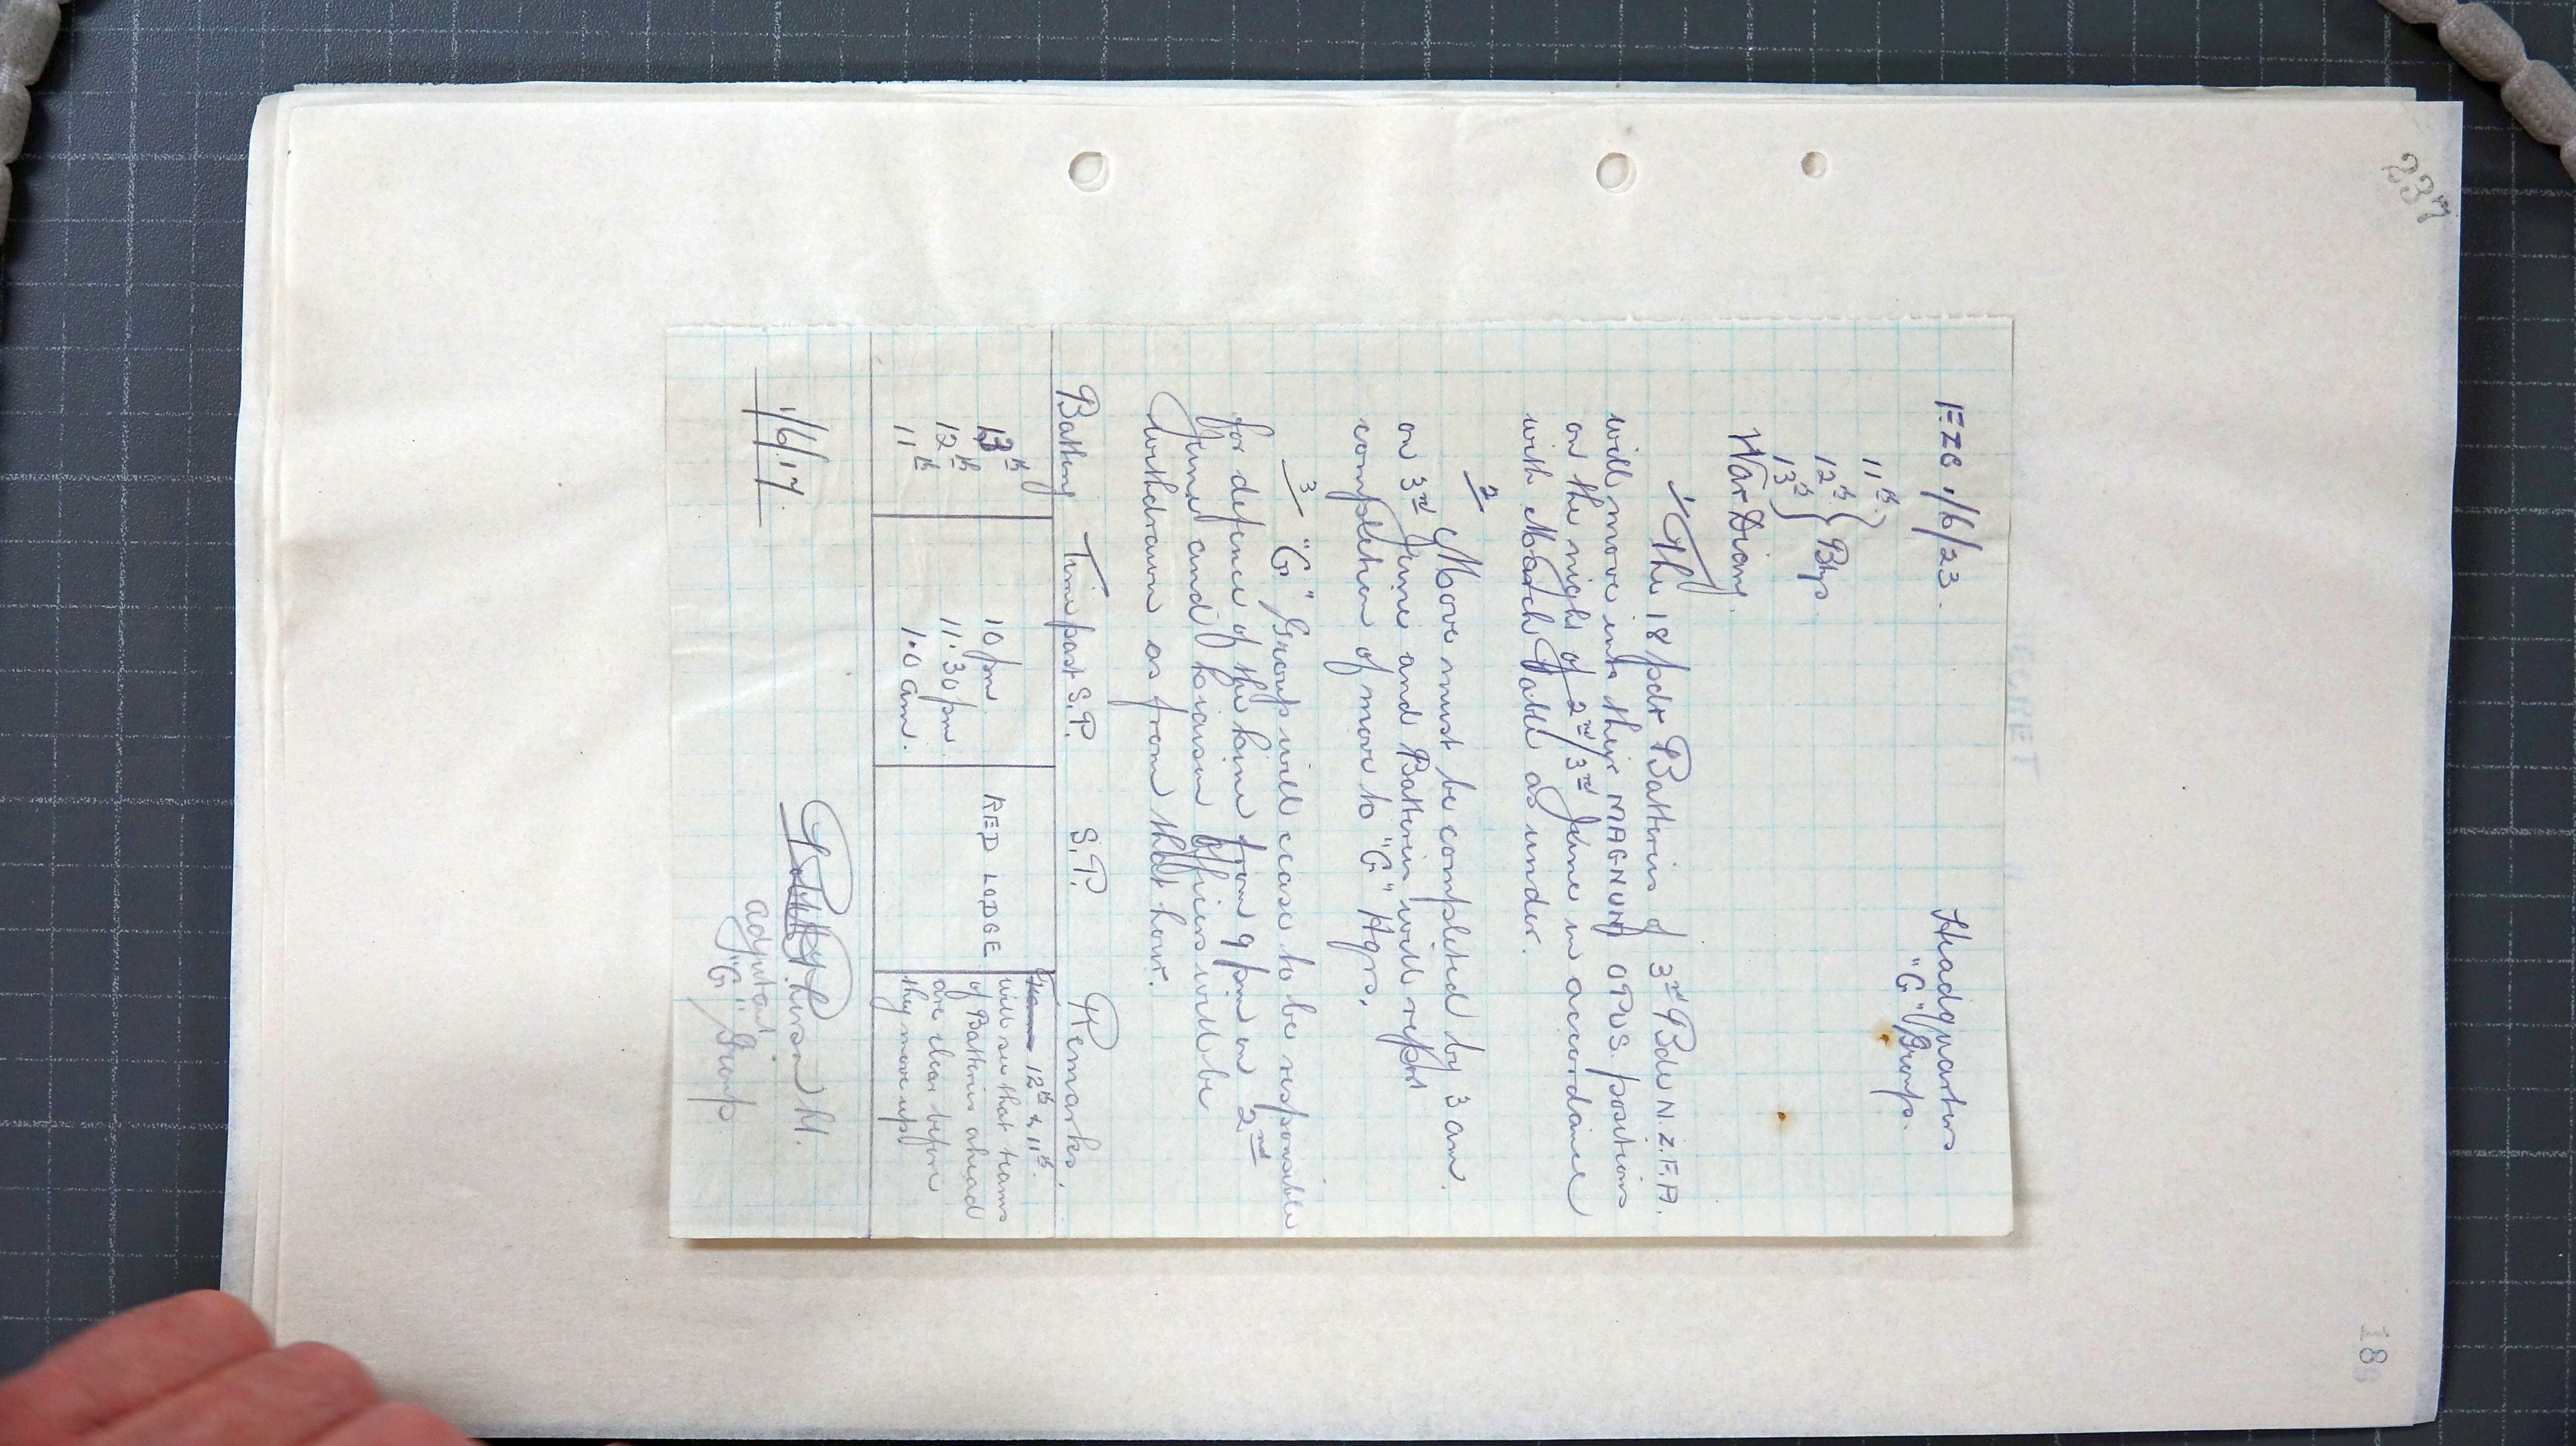 237
18
EZC 1/6/23.
Headquarters
"G" Group.
11th
12th } Btys.
13th
War Diary.
1/ The 18 pdr Batteries of 3rd Bde N.Z.F.A.
will move into their MAGNUM OPUS positions
on the night of 2nd/3rd June in accordance
with March Table as under.
2/ Move must be completed by 3 am.
on 3rd June and Batteries will report
completion of move to "G" Hqrs.
3/ "G" Group will cease to be responsible
for defence of the line from 9 pm on 2nd
June and Liaison Officers will be
withdrawn as from that hour.
Battery Time past S.P. S.P. Remarks.
13th 10 pm. RED LODGE 12th & 11th
12th 11.30 pm. will see that teams
11th 1.0 am. of Batteries ahead
are clear before
they move up
1/6/17.
Lt.
Adjutant
"G" Group